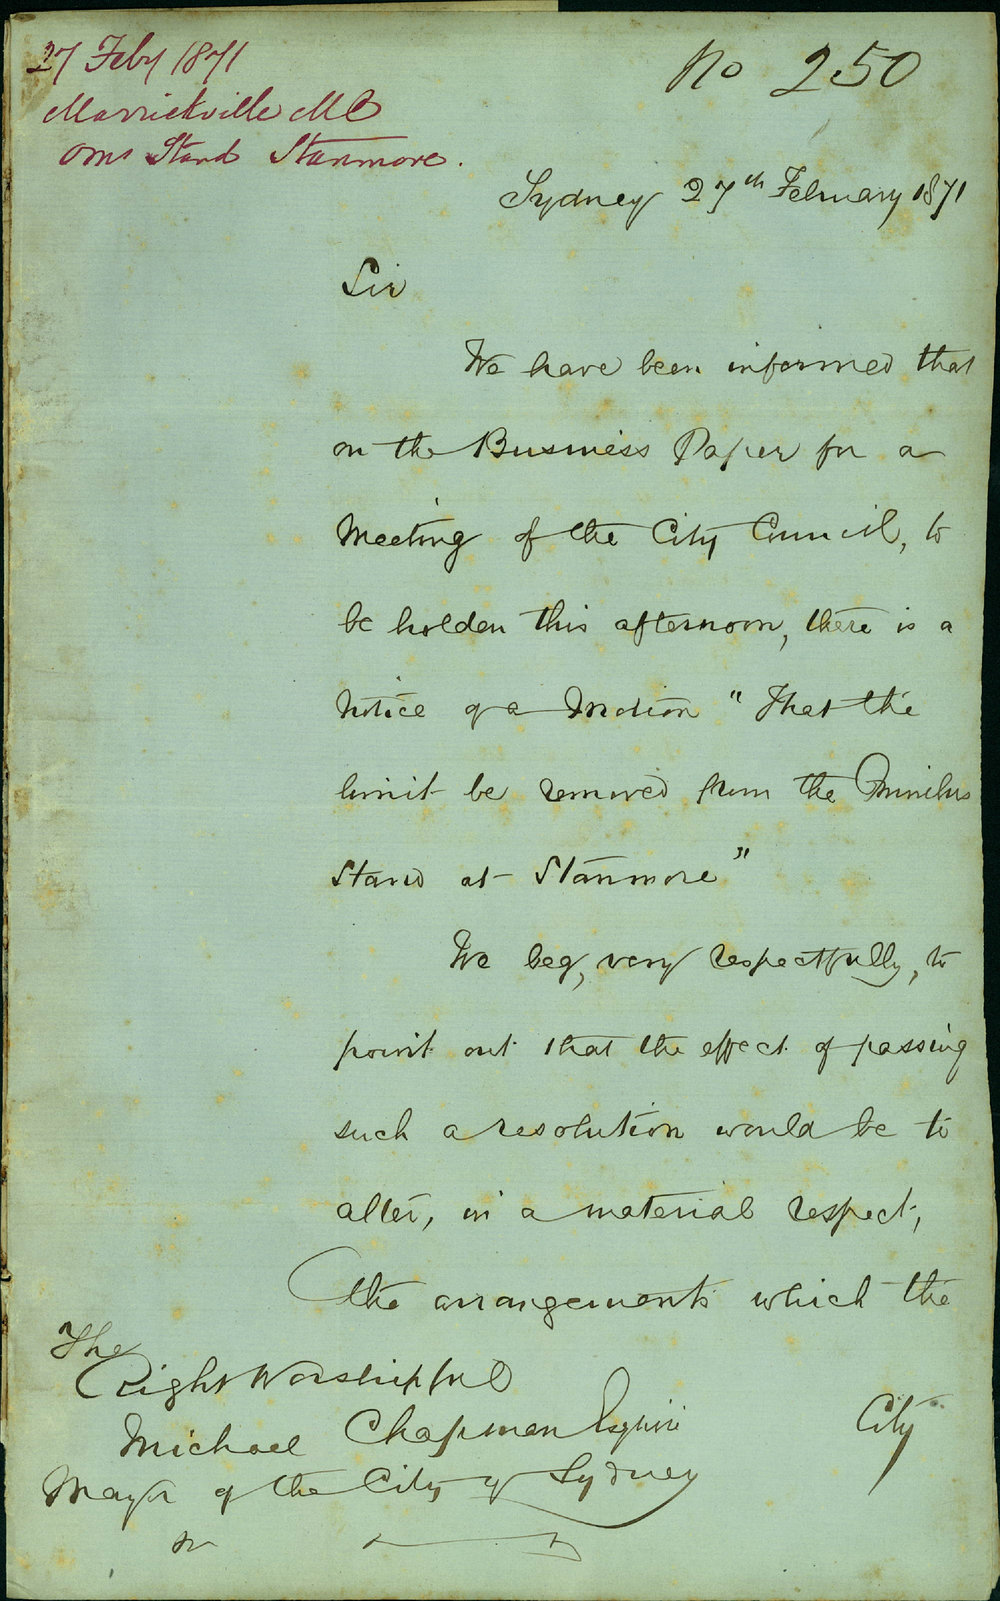 27 Feby 1871
Marrickville MC
Oms Stand Stanmore.
No 250
Sydney 27th February 1871
Sir
We have been informed that
on the Business Paper for a
Meeting of the City Council, to
be holden this afternoon, there is a
notice of a Motion "That the
limit be removed from the Omnibus
Stand at Stanmore"
We beg, very respectfully, to
point out that the effect of passing
such a resolution would be to
alter, in a material respect,
the arrangements which the
City
The
Right Worshipful
Michael Chapman Esquire
Mayor of the City of Sydney